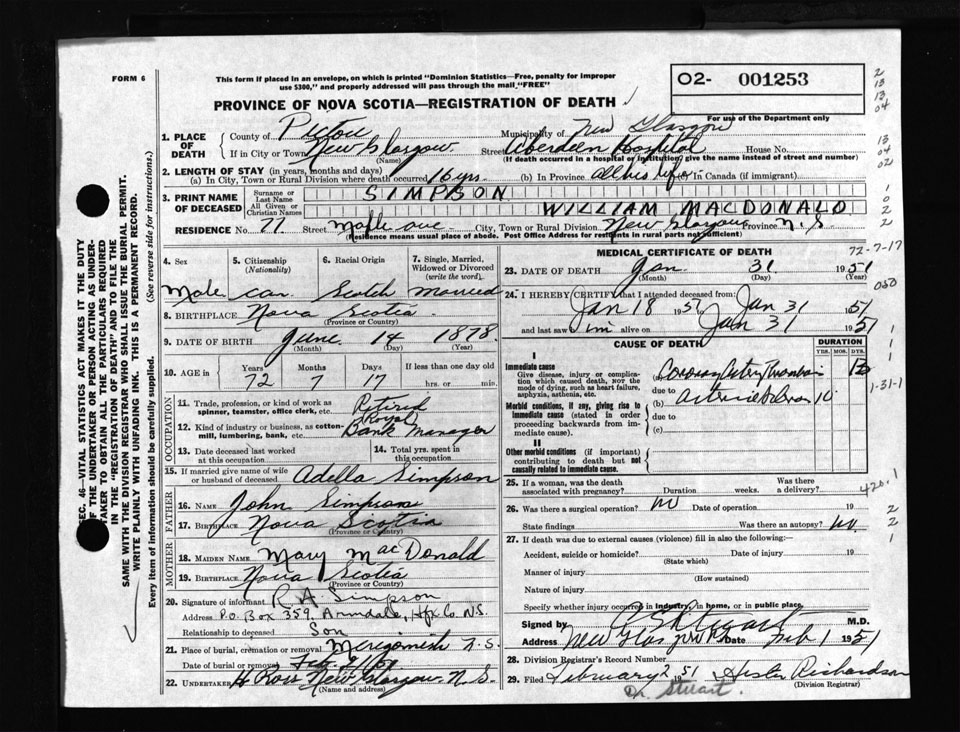 FORM 6
This form if placed in an envelope, on which is printed "Dominion Statistics—Free, penalty for improper
use $300," and properly addressed will pass through the mail "FREE"
O2- 001253
For use of the Department only
PROVINCE OF NOVA SCOTIA—REGISTRATION OF DEATH
1. PLACE OF DEATH County of Pictou Municipality of New Glasgow
If in City or Town New Glasgow (Name) Street Aberdeen Hospital House No.
(If death occurred in a hospital or institution, give the name instead of street and number)
2. LENGTH OF STAY (in years, months and days)
(a) In City, Town or Rural Division where death occurred 16 yrs. (b) In Province all his life (c) In Canada (if immigrant)
3. PRINT NAME OF DECEASED Surname or Last Name SIMPSON
All Given or Christian Names WILLIAM MACDONALD
RESIDENCE No. 77 Street Maple ave City, Town or Rural Division New Glasgow Province N.S.
(Residence means usual place of abode. Post Office Address for residents in rural parts not sufficient)
4. Sex 5. Citizenship (Nationality) 6. Racial Origin 7. Single, Married, Widowed or Divorced (write the word)
Male can. Scotch married
8. BIRTHPLACE Nova Scotia
(Province or Country)
9. DATE OF BIRTH June 14 1878
(Month) (Day) (Year)
10. AGE in Years Months Days If less than one day old
72 7 17 hrs. or min.
OCCUPATION
11. Trade, profession or kind of work as spinner, teamster, office clerk, etc. Retired
12. Kind of industry or business, as cotton-mill, lumbering, bank, etc. Royal Bank Manager
13. Date deceased last worked at this occupation 14. Total yrs. spent in this occupation
15. If married give name of wife or husband of deceased Adella Simpson
FATHER
16. Name John Simpson
17. Birthplace Nova Scotia
(Province or Country)
MOTHER
18. Maiden Name Mary MacDonald
19. Birthplace Nova Scotia
(Province or Country)
20. Signature of informant R A. Simpson
Address P.O. Box 359, Armdale, Hfx. Co. N.S.
Relationship to deceased Son
21. Place of burial, cremation or removal Merigomish N.S.
Date of burial or removal Feb 2/51
22. Undertaker H Ross New Glasgow N.S.
(Name and address)
MEDICAL CERTIFICATE OF DEATH
72-7-17
23. DATE OF DEATH Jan. 31 1951
(Month) (Day)
24. I HEREBY CERTIFY that I attended deceased from:
Jan 18 1951 Jan 31 1951
and last saw him alive on Jan 31 1951
CAUSE OF DEATH DURATION
YRS. MOS. DYS.
I
Immediate cause
Give disease, injury or complication which caused death, NOT the mode of dying, such as heart failure, asphyxia, asthenia, etc.
(a) Coronary Artery Thrombosis
due to
Morbid conditions, if any, giving rise to immediate cause (stated in order proceeding backwards from immediate cause).
(b) 10
due to
(c)
II
Other morbid conditions (if important) contributing to death but not causally related to immediate cause.
25. If a woman, was the death associated with pregnancy? Duration weeks. Was there a delivery?
26. Was there a surgical operation? no Date of operation 19
State findings Was there an autopsy? no.
27. If death was due to external causes (violence) fill in also the following:
Accident, suicide or homicide? Date of injury 19
(State which)
Manner of injury
(How sustained)
Nature of injury
Specify whether injury occurred in industry, in home, or in public place.
Signed by M.D.
Address New Glasgow N.S. Date Feb 1 1951
28. Division Registrar's Record Number
29. Filed February 2 1951 Hester Richardson
(Division Registrar)
Dr. Stuart.
1-31-1
420.1
050
SEC. 46—VITAL STATISTICS ACT MAKES IT THE DUTY
OF THE UNDERTAKER OR PERSON ACTING AS UNDER-
TAKER TO OBTAIN ALL THE PARTICULARS REQUIRED
IN THE "REGISTRATION OF DEATH" AND TO FILE THE
SAME WITH THE DIVISION REGISTRAR WHO SHALL ISSUE THE BURIAL PERMIT.
WRITE PLAINLY WITH UNFADING INK. THIS IS A PERMANENT RECORD.
Every item of information should be carefully supplied. (See reverse side for instructions.)